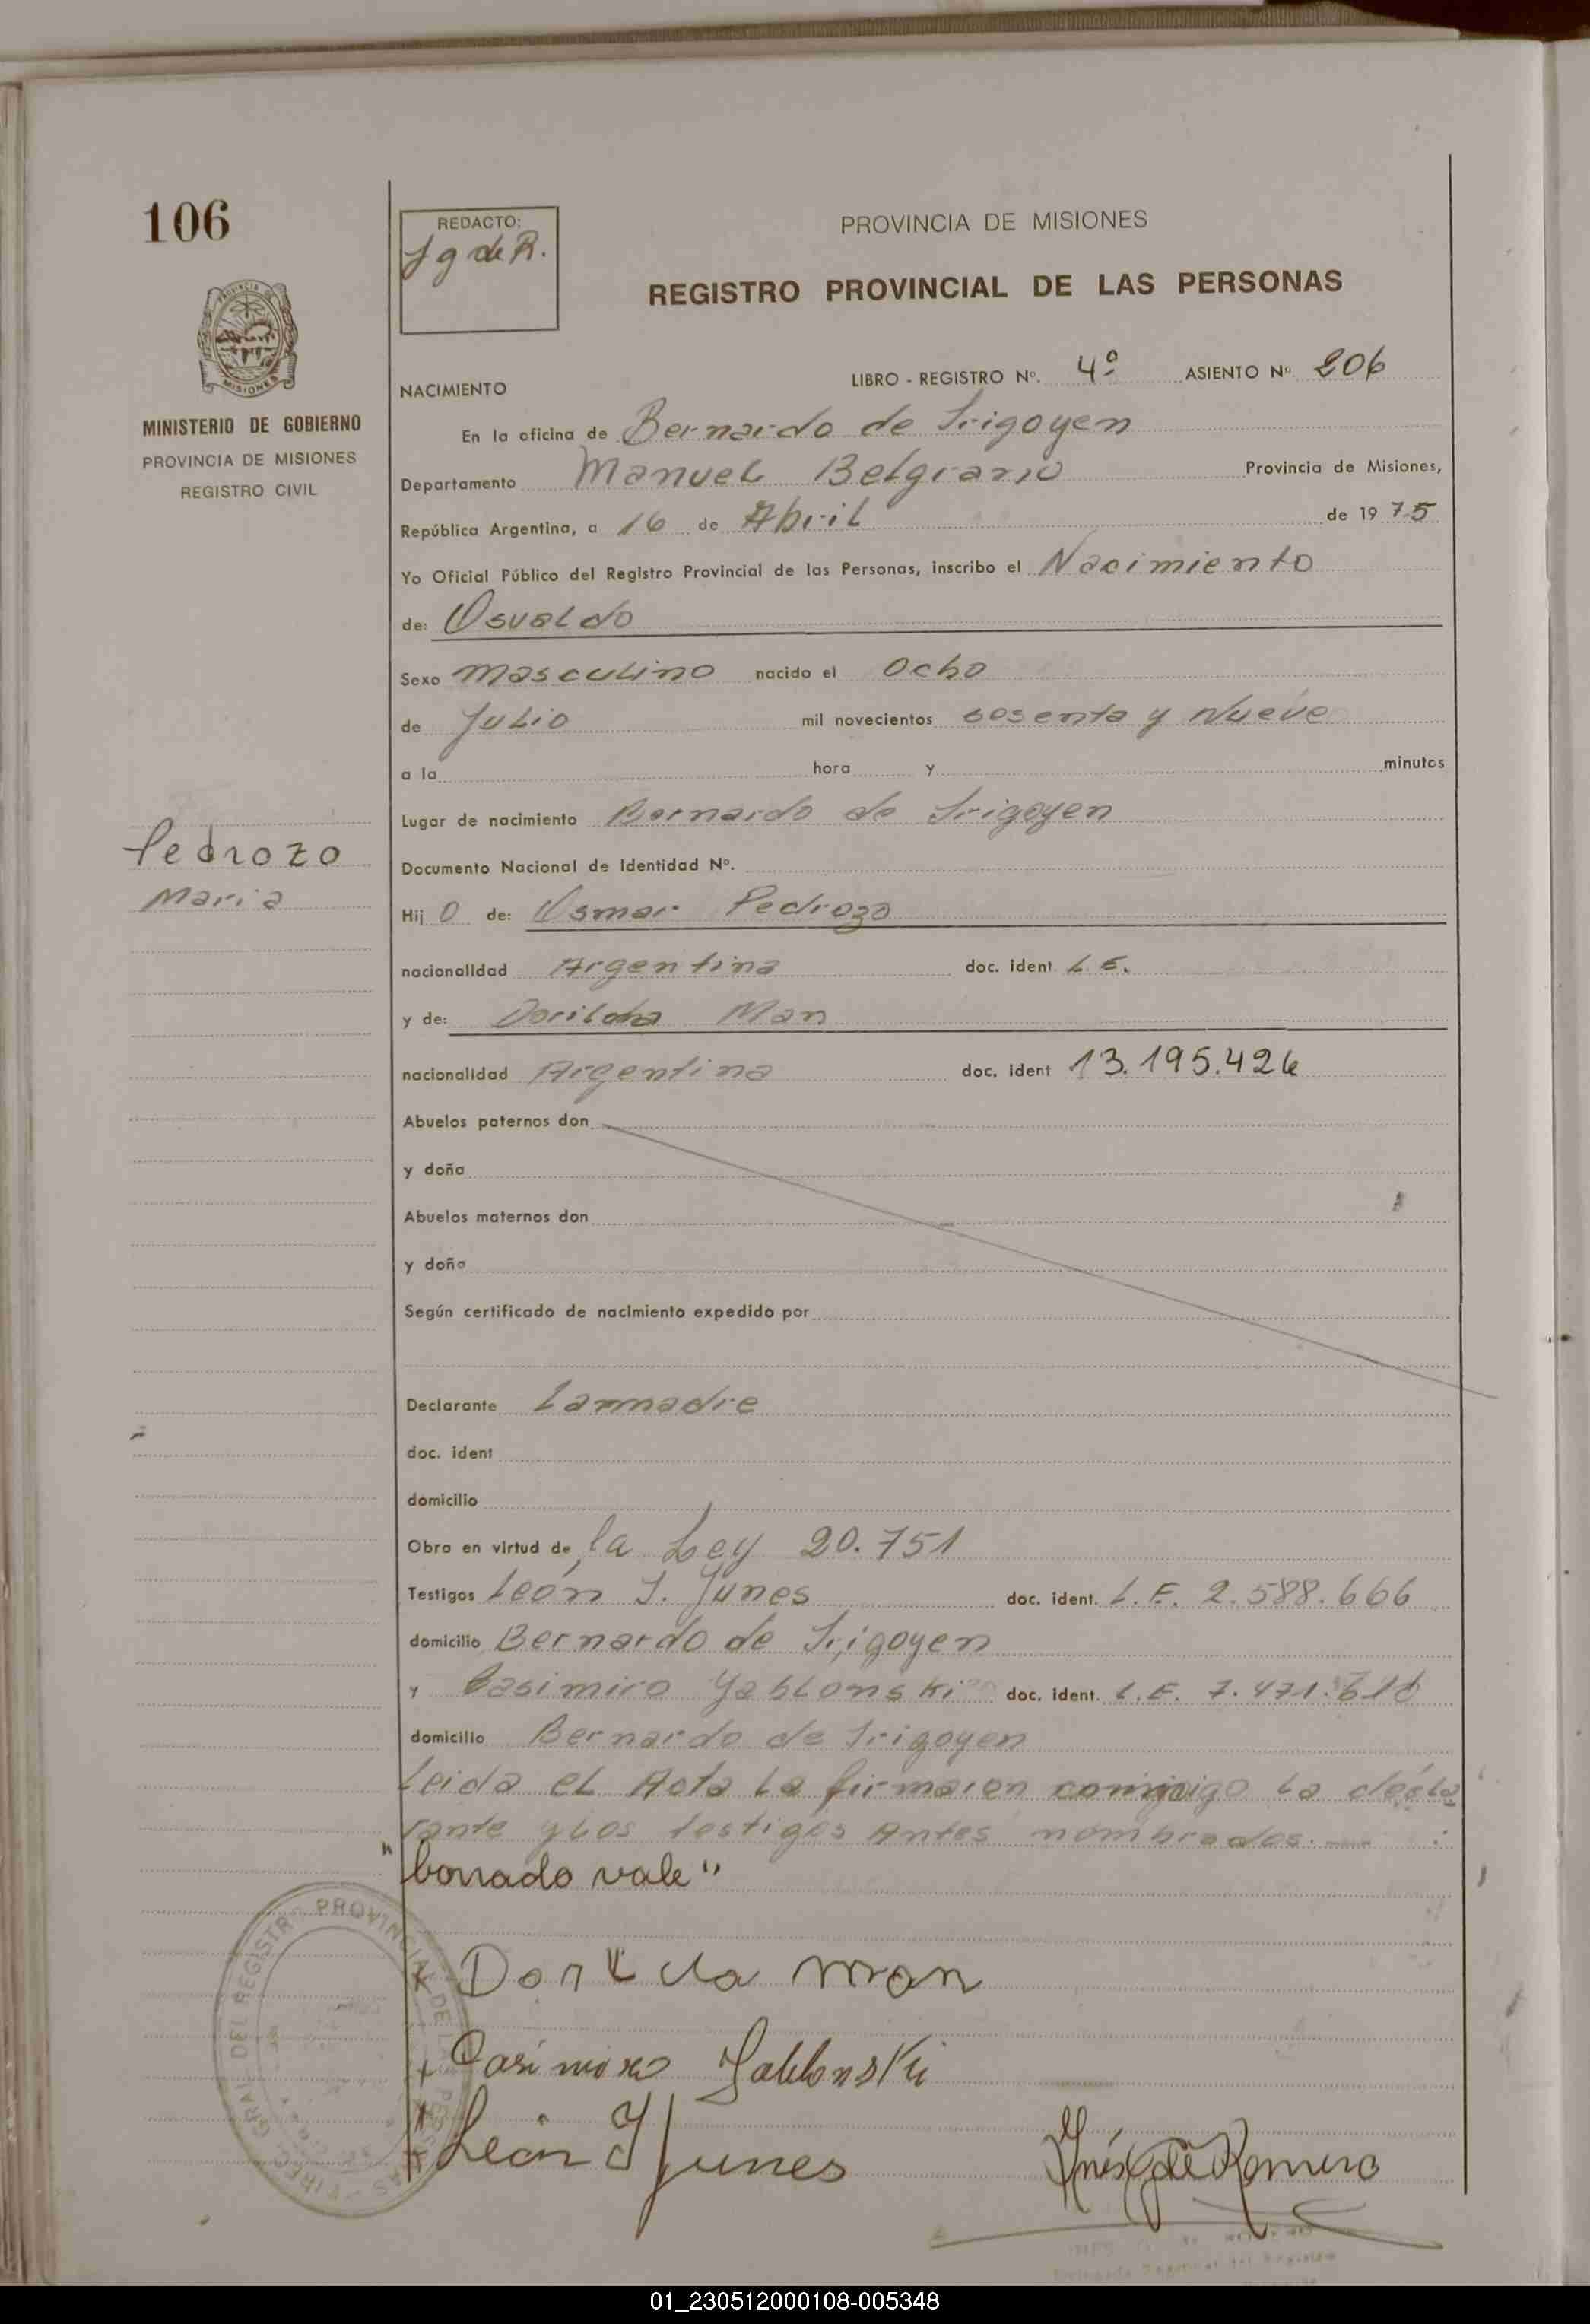 106
REDACTO:
J g de R.
PROVINCIA DE MISIONES
REGISTRO PROVINCIAL DE LAS PERSONAS
MISIONES
MINISTERIO DE GOBIERNO
PROVINCIA DE MISIONES
REGISTRO CIVIL
NACIMIENTO
LIBRO - REGISTRO Nº. 4º ASIENTO Nº 206
En la oficina de Bernardo de Irigoyen
Departamento Manuel Belgrano Provincia de Misiones,
República Argentina, a 16 de Abril de 19 75
Yo Oficial Público del Registro Provincial de las Personas, inscribo el Nacimiento
de: Osvaldo
Sexo Masculino nacido el Ocho
de Julio mil novecientos sesenta y Nueve
a la hora y minutos
Lugar de nacimiento Bernardo de Irigoyen
Pedrozo
Maria
Documento Nacional de Identidad Nº.
Hij O de: Osmar Pedrozo
nacionalidad Argentina doc. ident L. E.
y de: Man
nacionalidad Argentina doc. ident 13.195.426
Abuelos paternos don
y doña
Abuelos maternos don
y doña
Según certificado de nacimiento expedido por
Declarante Lanmadre
doc. ident
domicilio
Obra en virtud de la Ley 20.751
Testigos León J. Yunes doc. ident. L. E. 2.588.666
domicilio Bernardo de Irigoyen
y Casimiro Yablonski doc. ident. L. E. 7.471.
domicilio Bernardo de Irigoyen
Leida el Acta la firmaron conmigo la decla
rante y los testigos Antes nombrados.
"borrado vale"
x man
+ Casimiro Jablonski
León J Yunes
Inés G de Romero
DEL REGISTRO PROVINCIAL DE
01_230512000108-005348